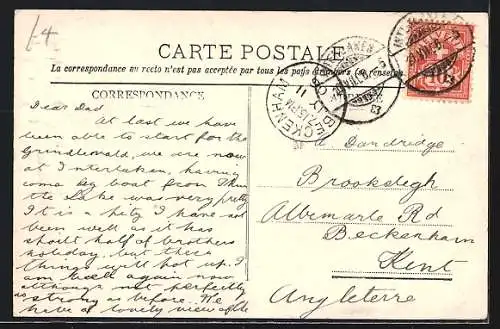 £4
CARTE POSTALE
La correspondance au recto n'est pas acceptée par tous les pays étrangers (se renseigner
CORRESPONDANCE
Dear Dad
At last we have
been able to start for the
Grindlewald, we are now
at Interlaken, having
come by boat from Thun
the Lake was very pretty
It is a pity I have not
been well as it has
spoilt half of brothers
holiday, but these
things will hot up. I
am well again now
although not perfectly
as strong as before. We
have a lovely view of the
BECKENHAM
7.15PM
11
Dandridge
Brooksleigh
Albemarle Rd
Beckenham
Kent
Angleterre
INTERLAKEN
10